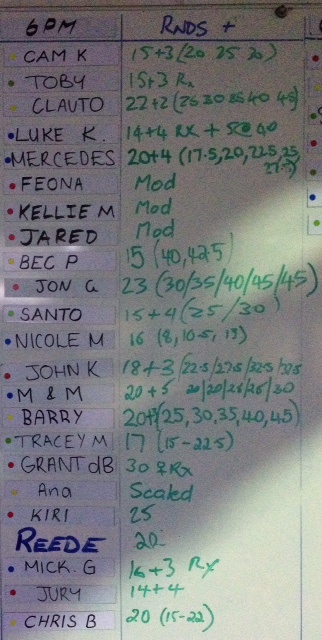 6PM RNDS +
CAM K 15+3 (20 25 30)
TOBY 15+3 Rx
CLAUTO 22+2 (25 30 35 40 45)
LUKE K. 14+4 RX + 40
MERCEDES 20+4 (17.5, 20, 22.5, 25, 27.5)
FEONA Mod
KELLIE M Mod
JARED Mod
BEC P 15 (40, 42.5)
JON G 23 (30/35/40/45/45)
SANTO 15+4 (25/30)
NICOLE M 16 (8, 10.5, 13)
JOHN K 18+3 (22.5/27.5/32.5/37.5
M & M 20+5 20/20/25/25/30
BARRY (25, 30, 35, 40, 45)
TRACEY M 17 (15-22.5)
GRANT dB 30 ♀Rx
Ana Scaled
KIRI 25
REEDE 20
MICK. G 16+3 Rx
JURY 14+4
CHRIS B 20 (15-22)